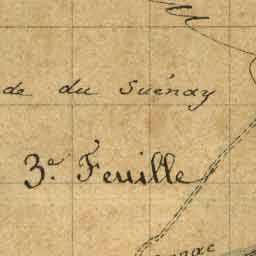 de du Suénay
3.e Feuille